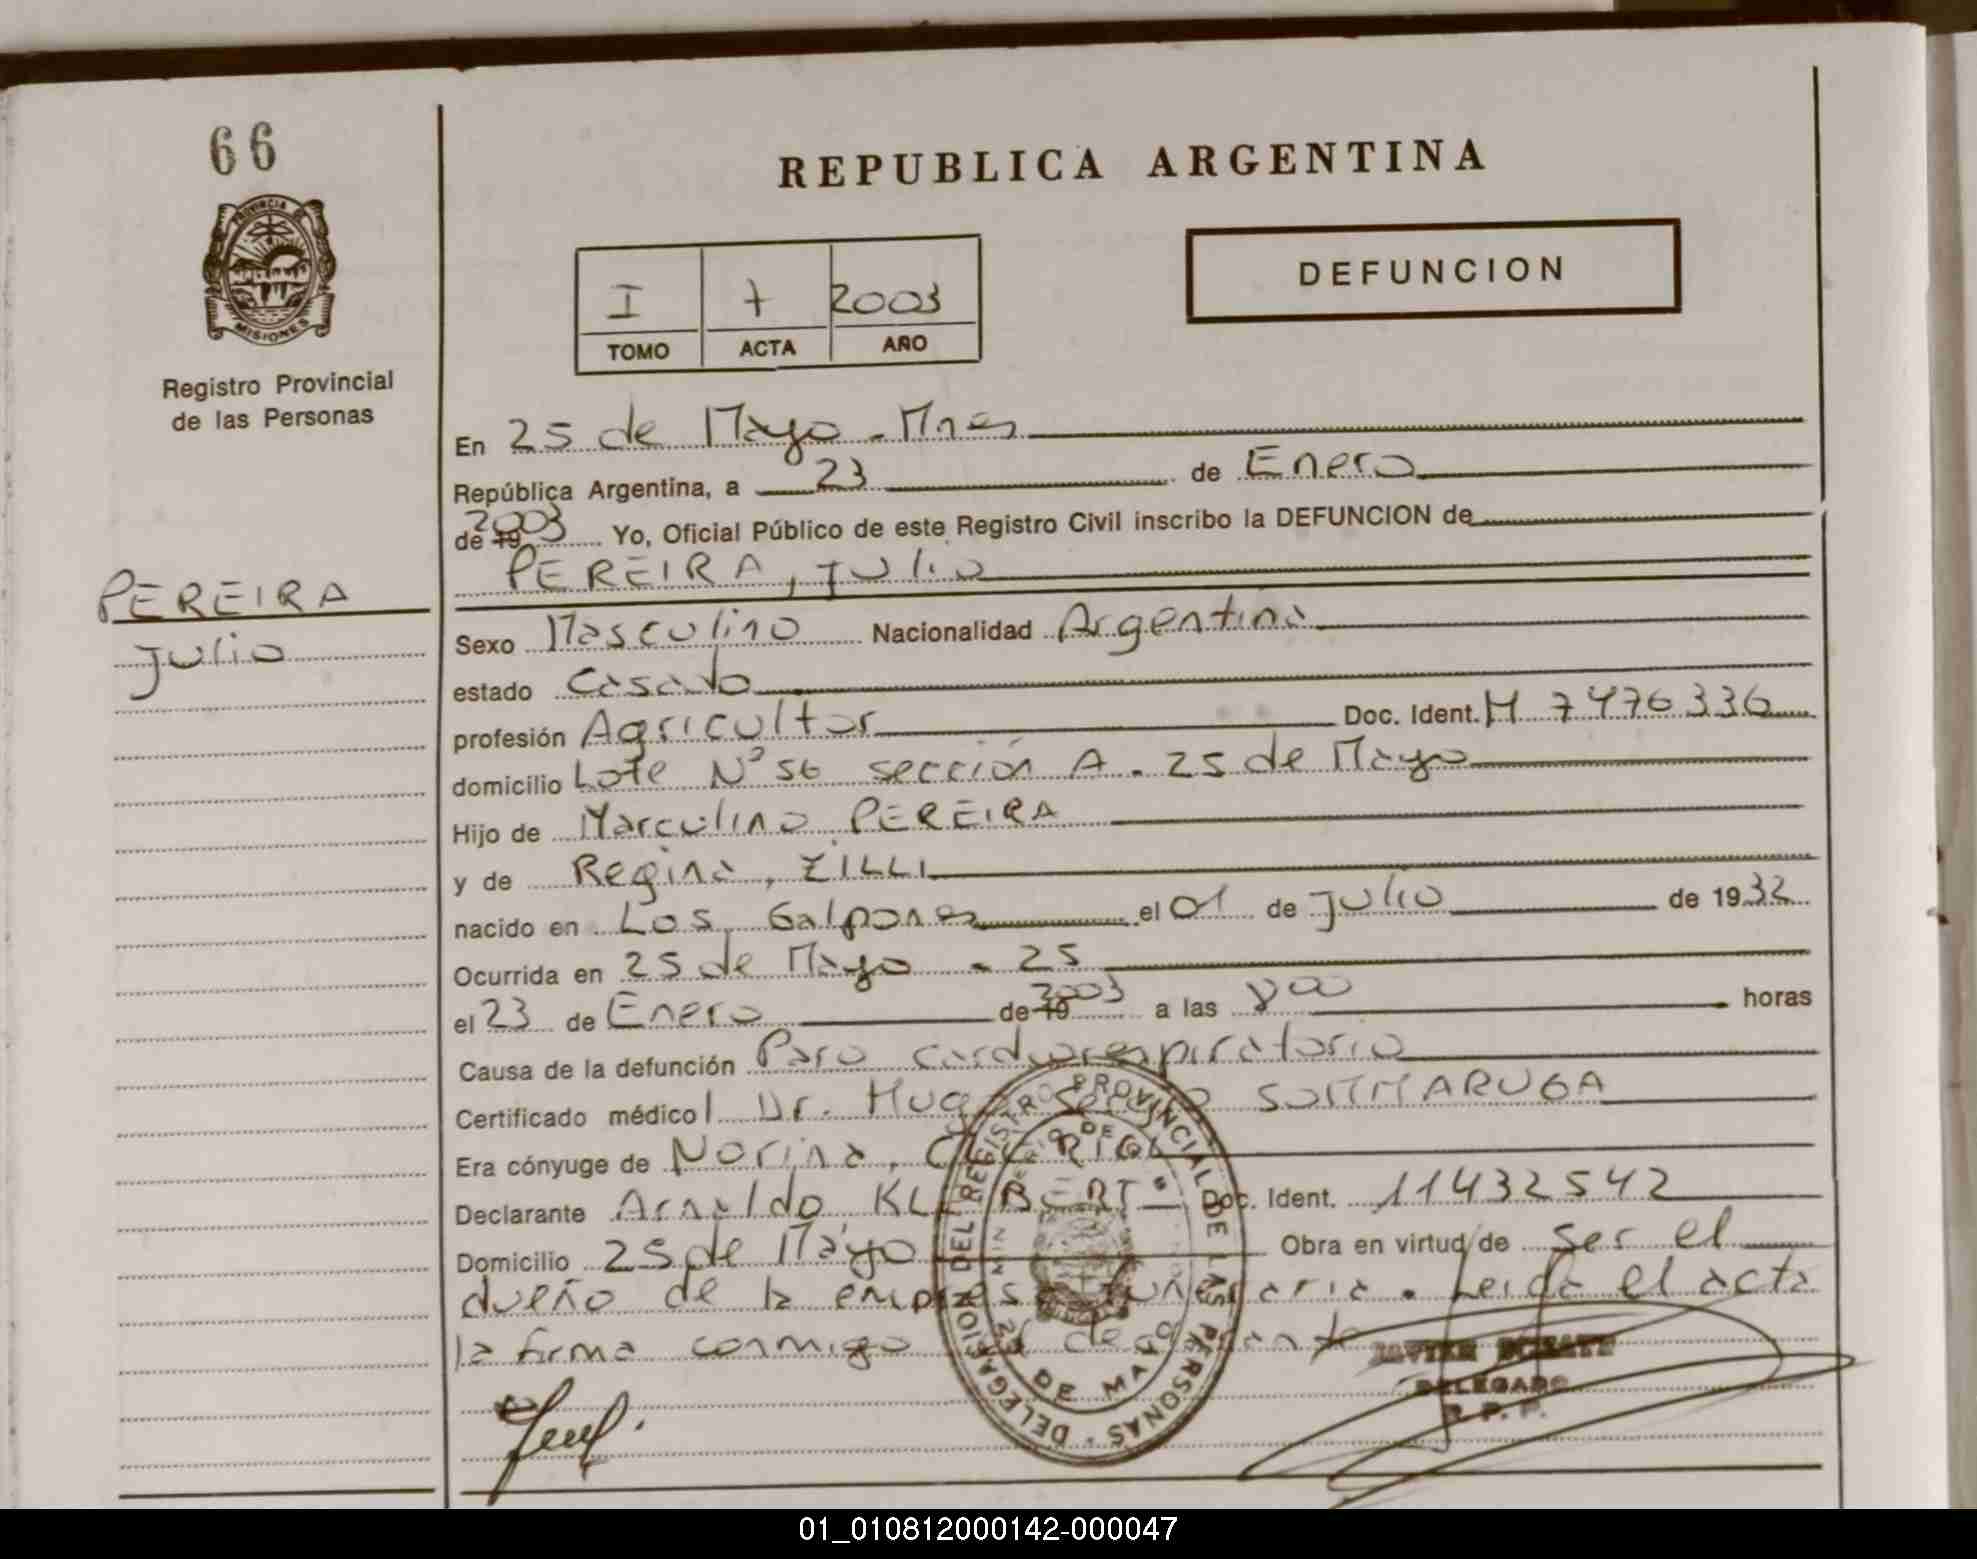 66
PROVINCIA DE
MISIONES
Registro Provincial
de las Personas
REPUBLICA ARGENTINA
DEFUNCION
I 7 2003
TOMO ACTA AÑO
En 25 de Mayo - Mnes
República Argentina, a 23 de Enero
de 19 2003 Yo, Oficial Público de este Registro Civil inscribo la DEFUNCION de
PEREIRA, Julio
PEREIRA
Julio
Sexo Masculino Nacionalidad Argentina
estado Casado
profesión Agricultor Doc. Ident. M 7476336
domicilio Lote Nº 56 sección A - 25 de Mayo
Hijo de Marculino PEREIRA
y de Regina, ZILLI
nacido en Los Galpones el 01 de Julio de 1932
Ocurrida en 25 de Mayo - 25
el 23 de Enero de 19 2003 a las 800 horas
Causa de la defunción Paro cardiorespiratorio
Certificado médico Dr. Hugo Sergio SOMMARUGA
Era cónyuge de Norina,
Declarante Arnaldo, Doc. Ident. 11432542
Domicilio 25 de Mayo Obra en virtud de ser el
dueño de la empresa funeraria. Leida el acta
la firma conmigo el declarante
DELEGACION DEL REGISTRO PROVINCIAL DE LAS PERSONAS
25 DE MAYO
JAVIER
DELEGADO
R. P. P.
01_010812000142-000047